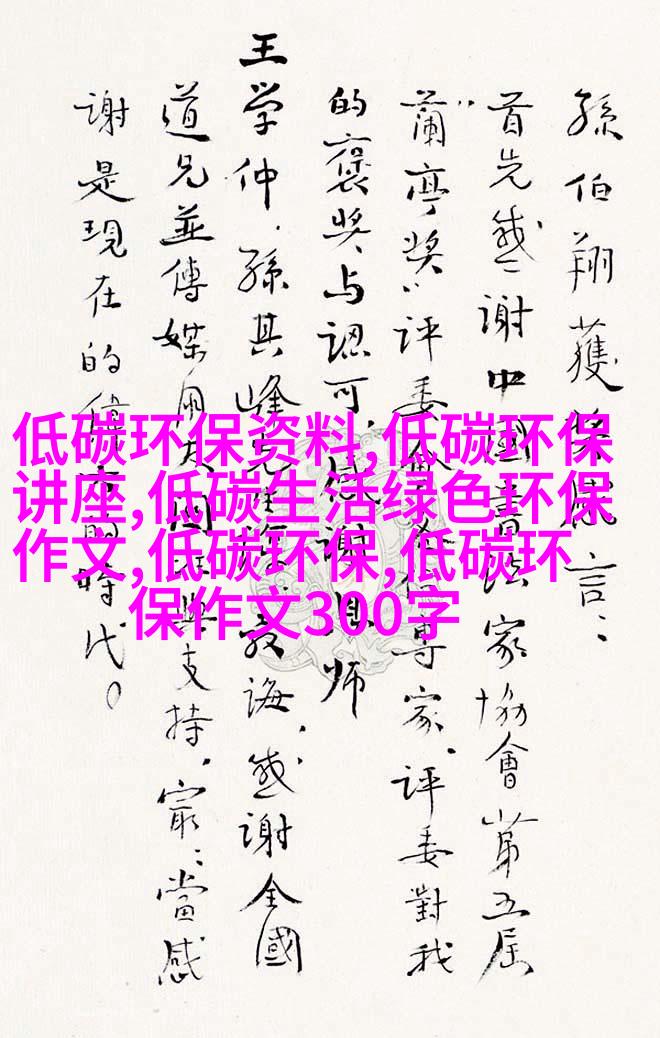 孫伯翔獲奖感言：
首先感謝中國書法家協會第五届
“蘭亭奖”评委專家、评委對我
的褒奖与認可，感谢恩师
王学仲、孫其峰先生教誨，感謝全國
道兄並傳媒支持，最：當感
謝是現在的時代。
低碳环保资料,低碳环保
讲座,低碳生活绿色环保
作文,低碳环保,低碳环
保作文300字